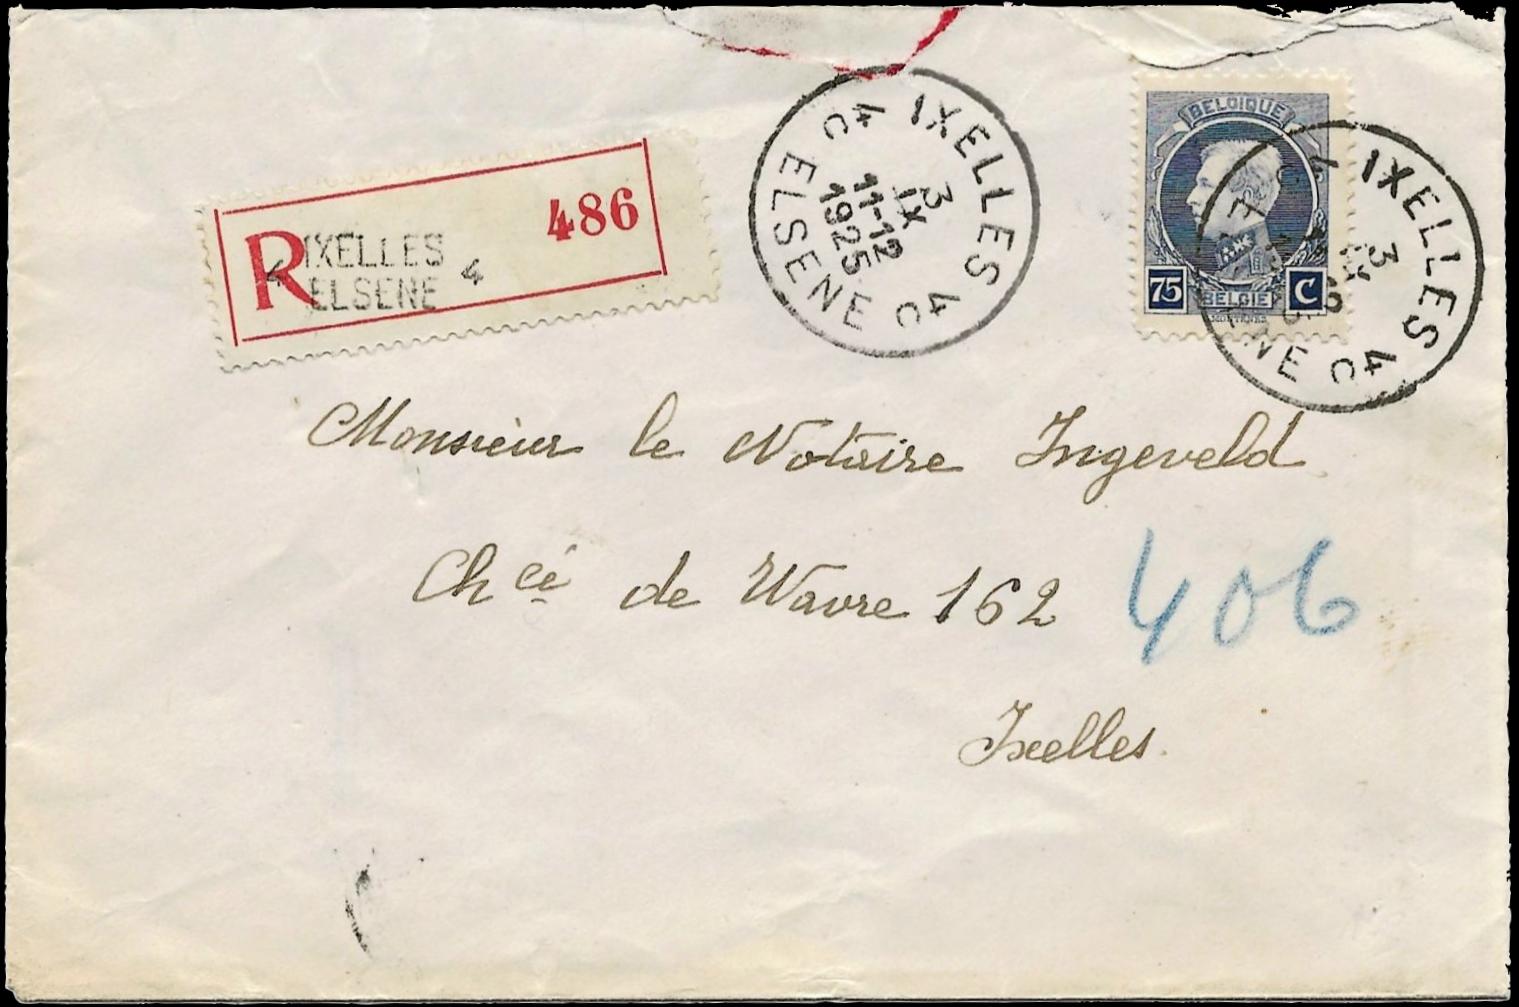 R
IXELLES
ELSENE
4 4
486
IXELLES
4C ELSENE C4
3
IX
11-12
1925
BELGIQUE
75 BELGIË C
IXELLES
3
IX
C4
Monsieur le Notaire Ingeveld
Chcé de Wavre 162
406
Ixelles.